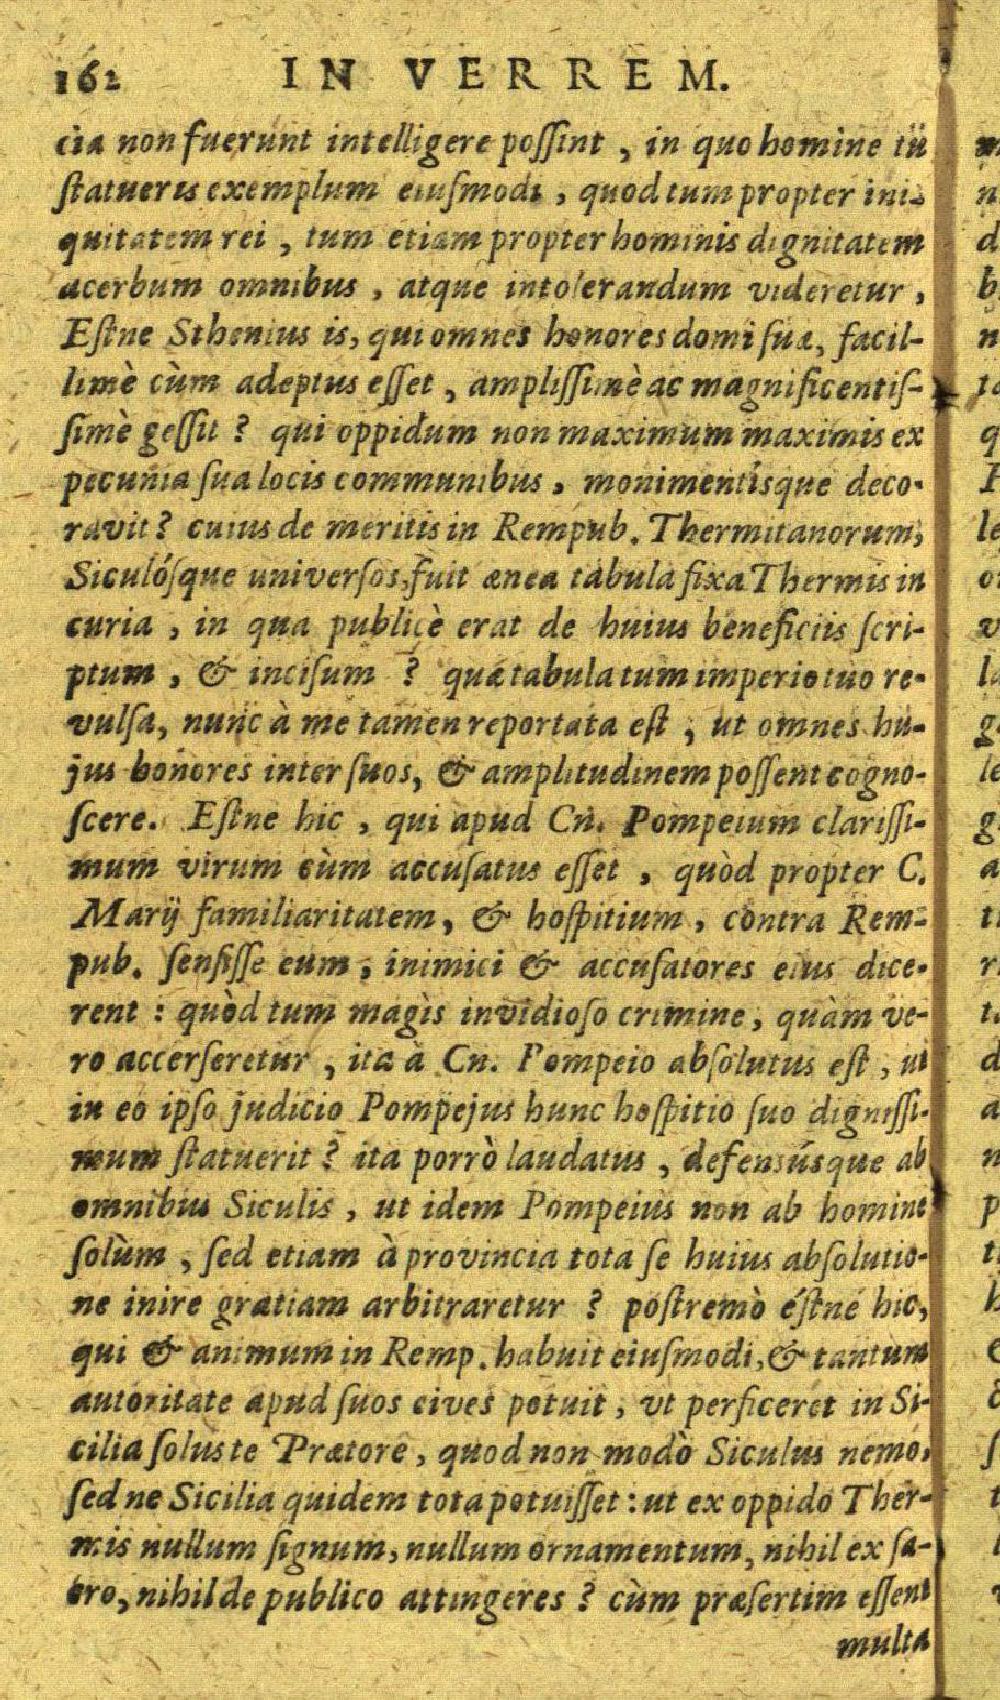 162 IN VERREM.
cia non fuerunt intelligere poſſint , in quo homine tu
ſtatueris exemplum eiuſmodi , quod tum propter ini-
quitatem rei , tum etiam propter hominis dignitatem
acerbum omnibus , atque intolerandum videretur ,
Eſtne Sthenius is, qui omnes honores domi ſuæ, facil-
limè cùm adeptus eſſet , ampliſſimè ac magnificentiſ-
ſimè geſſit ? qui oppidum non maximum maximis ex
pecunia ſua locis communibus , monimentísque deco-
ravit ? cuius de meritis in Rempub. Thermitanorum,
Siculóſque univerſos, fuit ænea tabula fixa Thermis in
curia , in qua publicè erat de huius beneficiis ſcri-
ptum , & inciſum ? quæ tabula tum imperio tuo re-
vulſa, nunc à me tamen reportata eſt , ut omnes hu-
jus honores inter ſuos, & amplitudinem poſſent cogno-
ſcere. Eſtne hic , qui apud Cn. Pompeium clariſſi-
mum virum cùm accuſatus eſſet , quòd propter C.
Marij familiaritatem, & hoſpitium , contra Rem-
pub. ſenſiſſe eum , inimici & accuſatores eius dice-
rent : quòd tum magìs invidioſo crimine, quàm ve-
ro accerſeretur , ita à Cn. Pompeio abſolutus eſt , ut
in eo ipſo judicio Pompejus hunc hoſpitio ſuo digniſſi-
mum ſtatuerit ? ita porrò laudatus , defensúsque ab
omnibus Siculis , ut idem Pompeius non ab homine
ſolùm , ſed etiam à provincia tota ſe huius abſolutio-
ne inire gratiam arbitraretur ? poſtremò éſtne hic,
qui & animum in Remp. habuit eiuſmodi, & tantum
autoritate apud ſuos cives potuit , vt perficeret in Si-
cilia ſolus te Prætore , quod non modò Siculus nemo,
ſed ne Sicilia quidem tota potuiſſet : ut ex oppido Ther-
mis nullum ſignum, nullum ornamentum, nihil ex ſa-
cro, nihil de publico attingeres ? cùm præſertim eſſent
multa